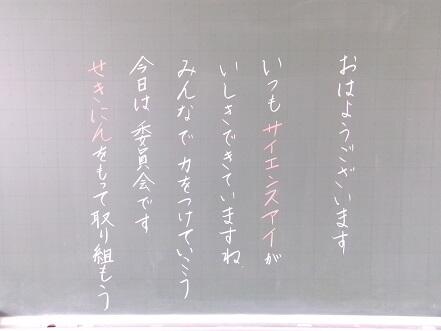 おはようございます
いつもサイエンスアイが
いしきできていますね
みんなで力をつけていこう
今日は委員会です
せきにんをもって取り組もう